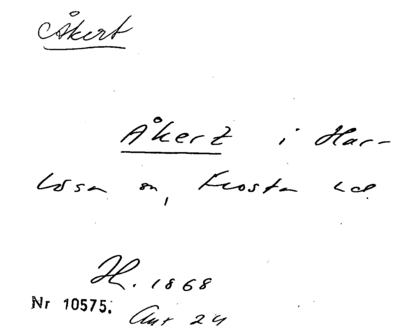 Åkert
Åkert i Har-
lösa sn, Frosta hd.
H. 1868
Nr 10575. Ant 24